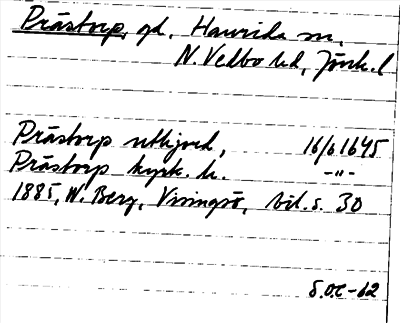 Prästorp, gd. Haurida sn.
N. Vedbo hd, Jönk. l
Prästorp utkjord, 16/6 1645
Prästorp kyrk. h. -"-
1885, W. Berg, Visingsö, bil. s. 30
S.O.E -62